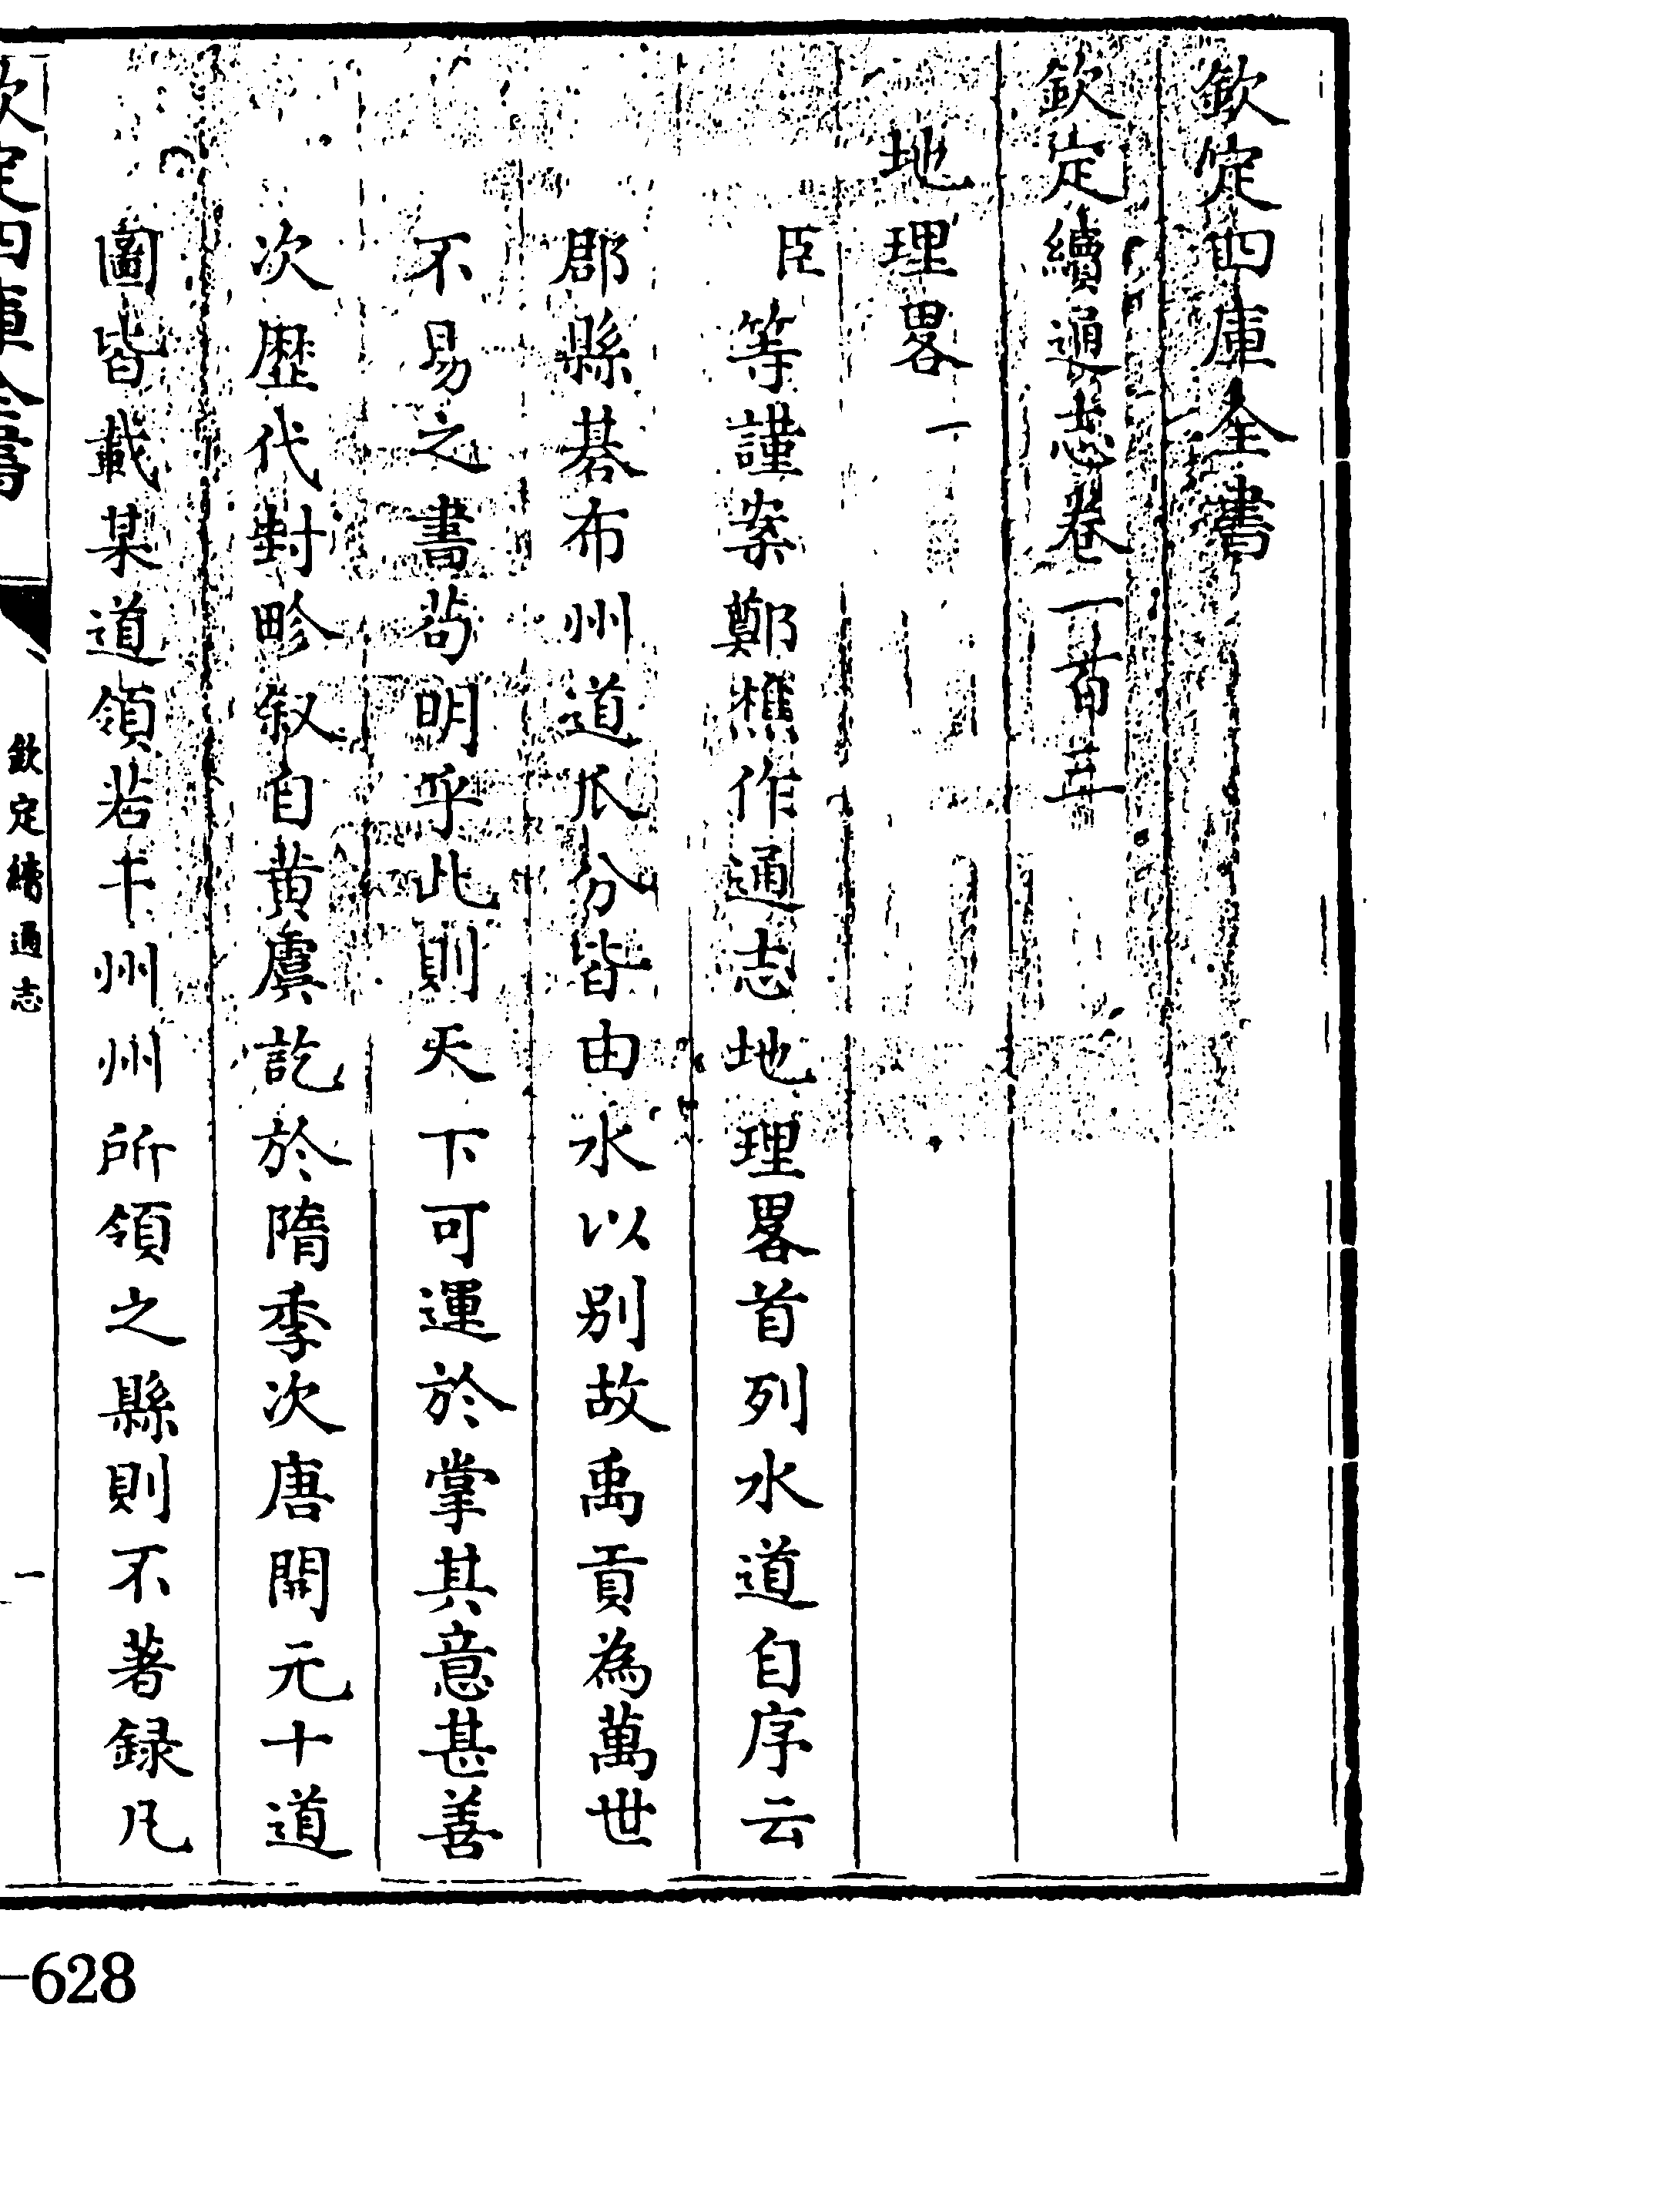 欽定四庫全書
欽定續通志卷一百
地理畧一
臣等謹案鄭樵作通志地理畧首列水道自序云
郡縣碁布州道瓜分皆由水以别故禹貢為萬世
不易之書茍明乎此則天下可運於掌其意甚善
次歴代封畛叙自黄虞訖於隋季次唐開元十道
圖皆載某道領若干州州所領之縣則不著録凡
欽定四庫全書
欽定續通志
一
—628